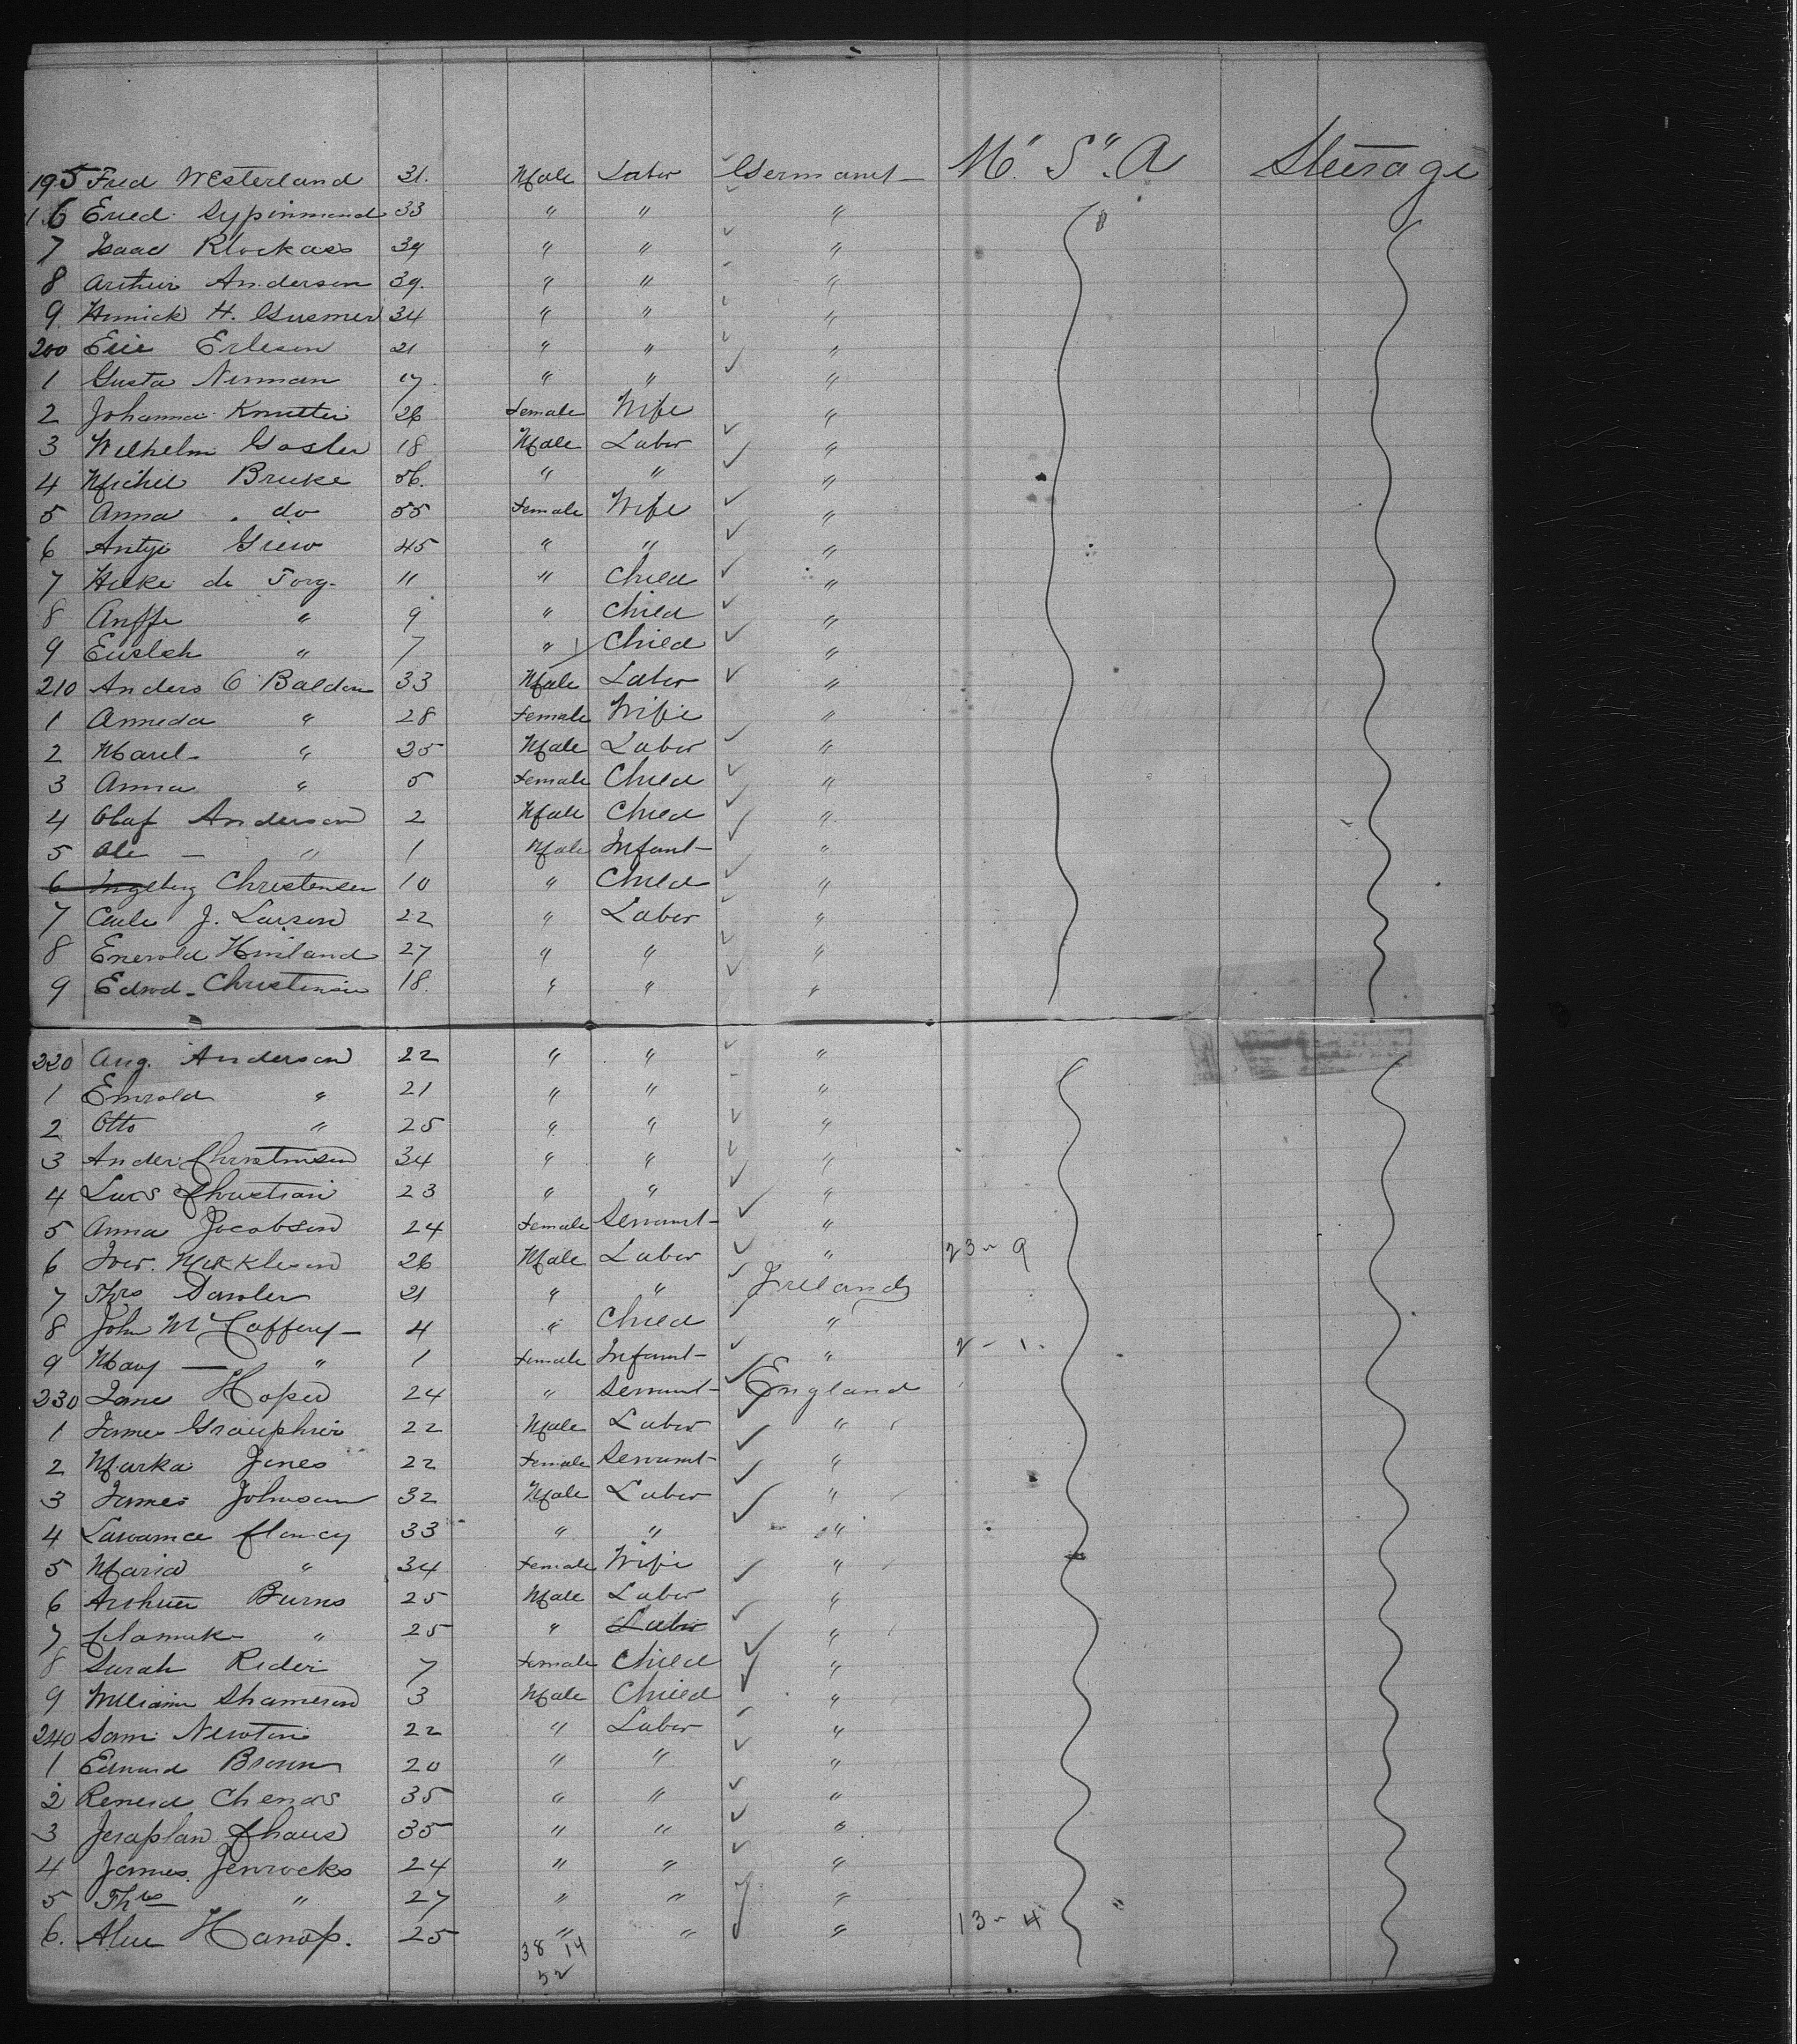 195 Fred Westerland 31. Male Labor Germant U" S" A Steerage
6 Ered 33 " " "
7 Isaac Klockass 39 " " "
8 Arthur Anderson 39. " " "
9 H. 34 " " "
200 Eric Ericson 21 " " "
1 Gusta Nerman 17 " " "
2 Johanna 26 Female Wife "
3 Wilhelm Goster 18 Male Labor "
4 Michel Bruke 56. " " "
5 Anna do 55 Female Wife "
6 Antje Grew 45 " " "
7 Heke de Torg. 11 " Child "
8 Anffe " 9 " Child "
9 " 7 " Child "
210 Anders O Balden 33 Male Labor "
1 Anneda " 28 Female Wife "
2 " 25 Male Labor "
3 Anna " 5 Female Child "
4 Olaf Anderson 2 Male Child "
5 Ole — " 1 Male Infant "
6 Ingeberg Christensen 10 " Child "
7 Carle J. Larson 22 " Labor "
8 27 " " "
9 Edwd Christensen 18. " " "
220 Aug. Anderson 22 " " "
1 Emrold " 21 " " "
2 Otto " 25 " " "
3 Ander Christensen 34 " " "
4 Lars Christian 23 " " "
5 Anna Jacobson 24 Female Servant "
6 Iver. Mikkleson 26 Male Labor " 23 - 9
7 Thos 21 " " Ireland
8 John McCaffery 4 " Child "
9 Mary — " 1 Female Infant " 2 - 1.
230 Jane Hoper 24 " Servant England
1 James 22 Male Labor "
2 Marka Jones 22 Female Servant "
3 James Johnson 32 Male Labor "
4 Lawrance Clancy 33 " " "
5 Maria " 34 Female Wife "
6 Arthur Burns 25 Male Labor "
7 " 25 " Labor "
8 Sarah Rider 7 Female Child "
9 William Shameron 3 Male Child "
240 Sam Newton 22 " Labor "
1 Edward Brown 20 " " "
2 35 " " "
3 35 " " "
4 James Jenrocks 24 " " "
5 Thos " 27 " " "
6. Hanop. 25 " " " 13 - 4
38 14
52